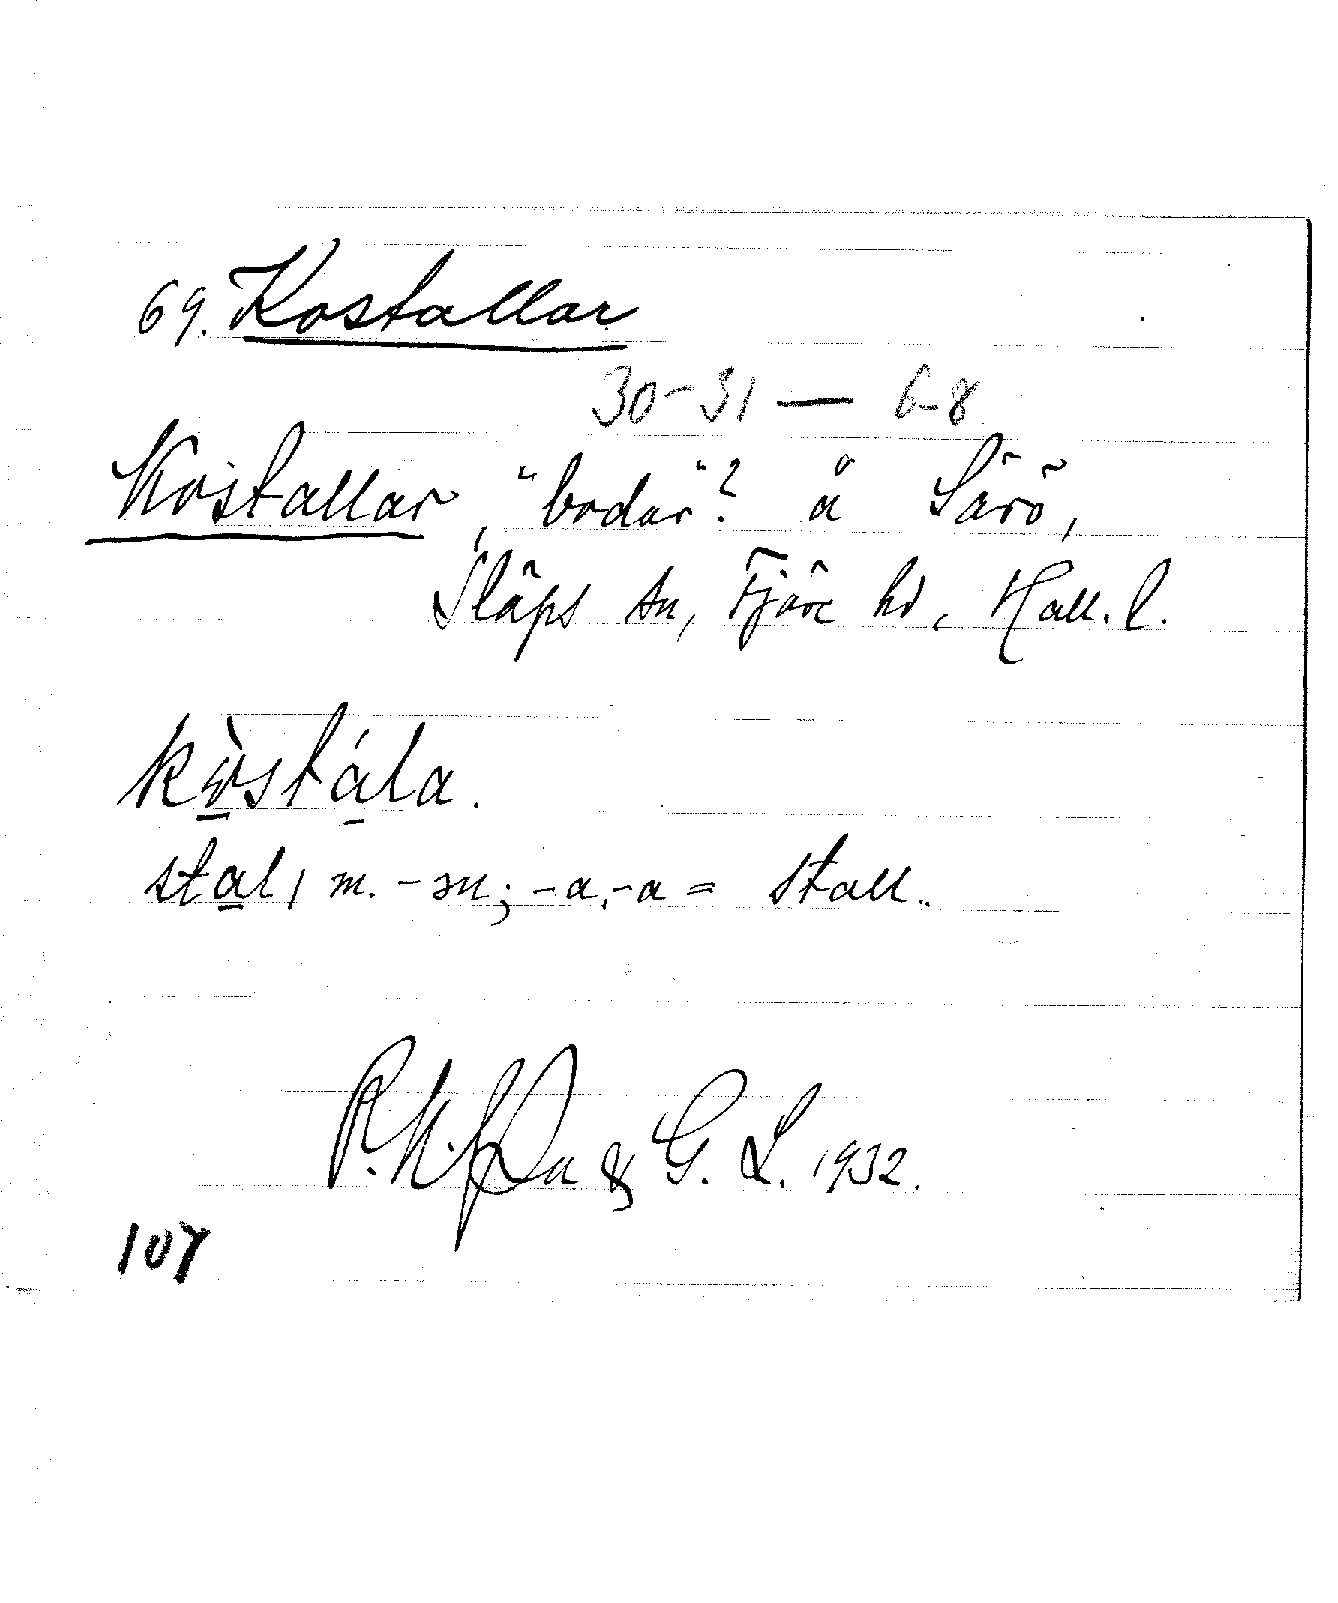 69. Kostallar
30-31 — 6-8
Kostallar, "bodar"? å Särö,
Släps sn, Fjäre hd, Hall. l.
kòstála.
stal, m. -ən; -a, -a = stall.
& G. L. 1932.
107